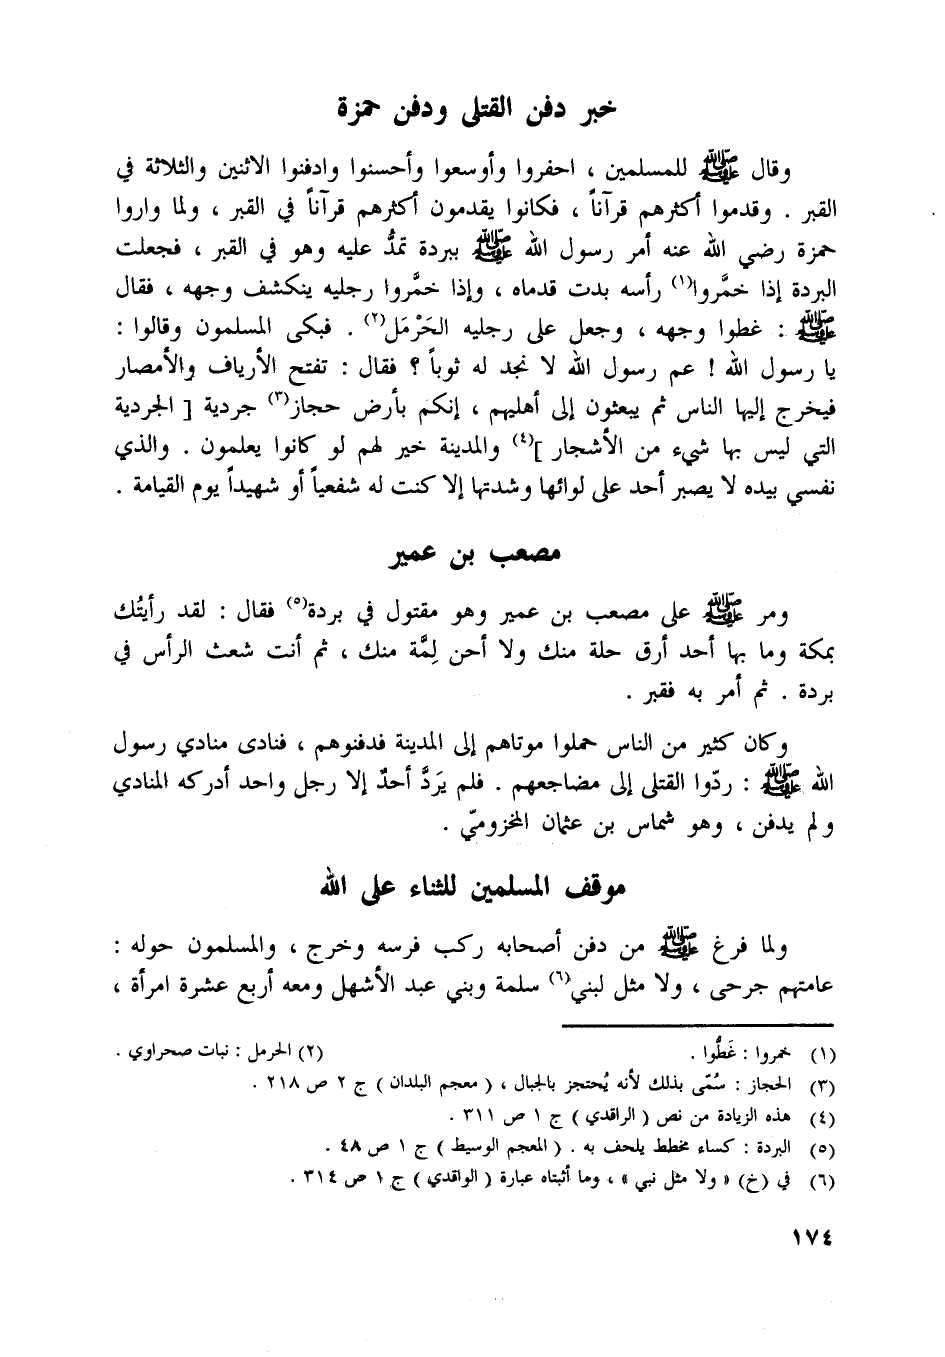 خبر دفن القتلى ودفن حمزة
وقال ﷺ للمسلمين ، احفروا وأوسعوا وأحسنوا وادفنوا الاثنين والثلاثة في
القبر . وقدموا أكثرهم قرآناً ، فكانوا يقدمون أكثرهم قرآناً في القبر ، ولما واروا
حمزة رضي الله عنه أمر رسول الله ﷺ ببردة تمدُّ عليه وهو في القبر ، فجعلت
البردة إذا خمَّروا(١) رأسه بدت قدماه ، وإذا خمَّروا رجليه ينكشف وجهه ، فقال
ﷺ : غطوا وجهه ، وجعل على رجليه الحَرْمَل(٢) . فبكى المسلمون وقالوا :
يا رسول الله ! عم رسول الله لا نجد له ثوباً ؟ فقال : تفتح الأرياف والأمصار
فيخرج إليها الناس ثم يبعثون إلى أهليهم ، إنكم بأرض حجاز(٣) جردية [ الجردية
التي ليس بها شيء من الأشجار ](٤) والمدينة خير لهم لو كانوا يعلمون . والذي
نفسي بيده لا يصبر أحد على لوائها وشدتها إلا كنت له شفعياً أو شهيداً يوم القيامة .
مصعب بن عمير
ومر ﷺ على مصعب بن عمير وهو مقتول في بردة(٥) فقال : لقد رأيتُك
بمكة وما بها أحد أرق حلة منك ولا أحن لِمَّة منك ، ثم أنت شعث الرأس في
بردة . ثم أمر به فقبر .
وكان كثير من الناس حملوا موتاهم إلى المدينة فدفنوهم ، فنادى منادي رسول
الله ﷺ : ردّوا القتلى إلى مضاجعهم . فلم يَردَّ أحدٌ إلا رجل واحد أدركه المنادي
ولم يدفن ، وهو شماس بن عثمان المخزوميّ .
موقف المسلمين للثناء على الله
ولما فرغ ﷺ من دفن أصحابه ركب فرسه وخرج ، والمسلمون حوله :
عامتهم جرحى ، ولا مثل لبني(٦) سلمة وبني عبد الأشهل ومعه أربع عشرة امرأة ،
(١) خمروا : غَطُّوا . (٢) الحرمل : نبات صحراوي .
(٣) الحجاز : سُمّى بذلك لأنه يُحتجز بالجبال ، ( معجم البلدان ) ج ٢ ص ٢١٨ .
(٤) هذه الزيادة من نص ( الراقدي ) ج ١ ص ٣١١ .
(٥) البردة : كساء مخطط يلحف به . ( المعجم الوسيط ) ج ١ ص ٤٨ .
(٦) في (خ) « ولا مثل نبي » ، وما أثبتناه عبارة ( الواقدي ) ج ١ ص ٣١٤ .
١٧٤